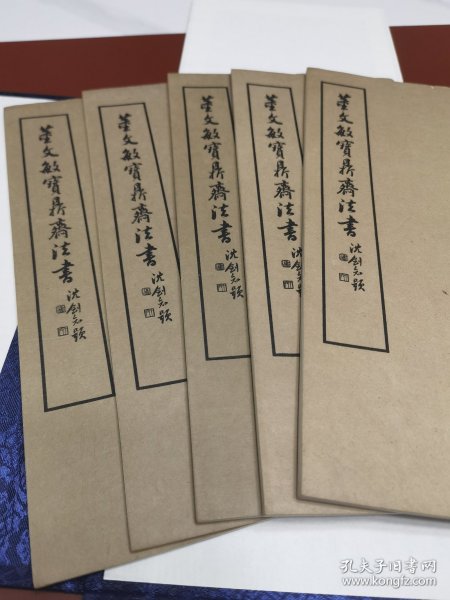 董文敏寶鼎齋法書
沈劍知題
董文敏寶鼎齋法書
沈劍知題
董文敏寶鼎齋法書
沈劍知題
董文敏寶鼎齋法書
沈劍知題
董文敏寶鼎齋法書
沈劍知題
孔夫子旧书网
www.kongfz.com